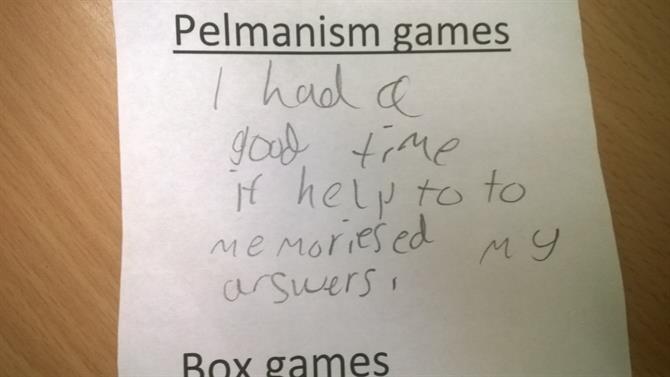 Pelmanism games
I had a
good time
it help to to
memoriesed my
answers.
Box games